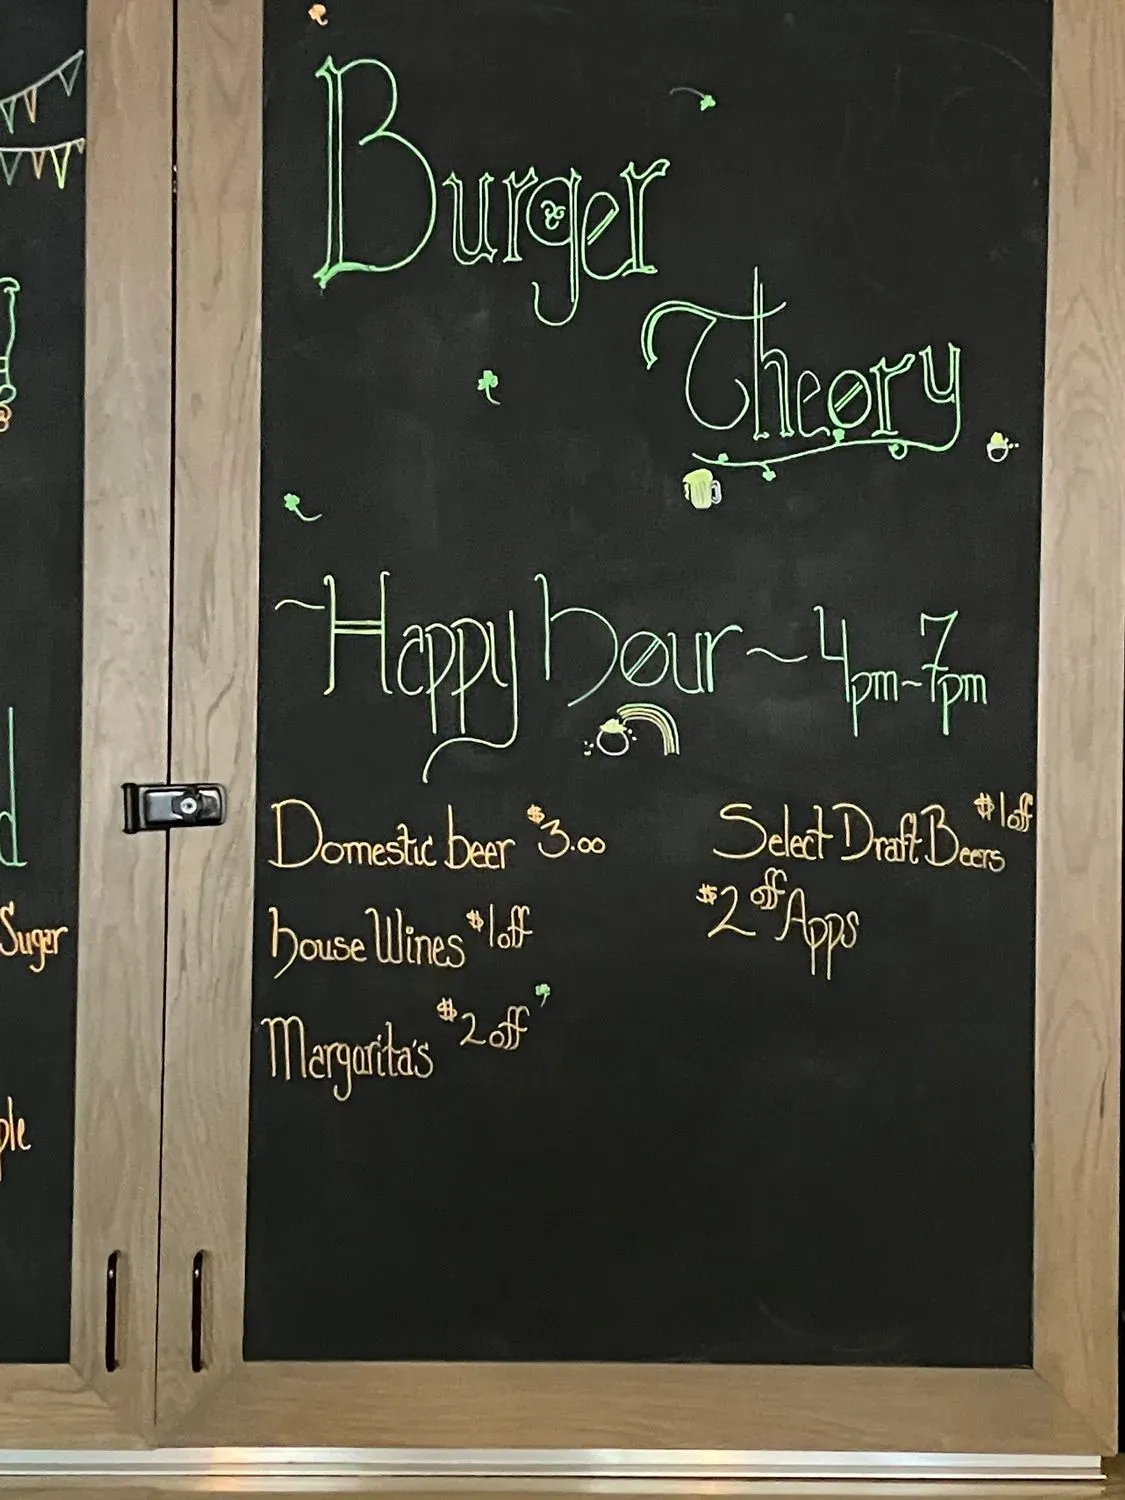 Burger
Theory
~Happy hour~4pm-7pm
Domestic beer $3.00
House Wines $1 off
Margarita's $2 off
Select Draft Beers $1 off
$2 off Apps
d
Sugar
ple